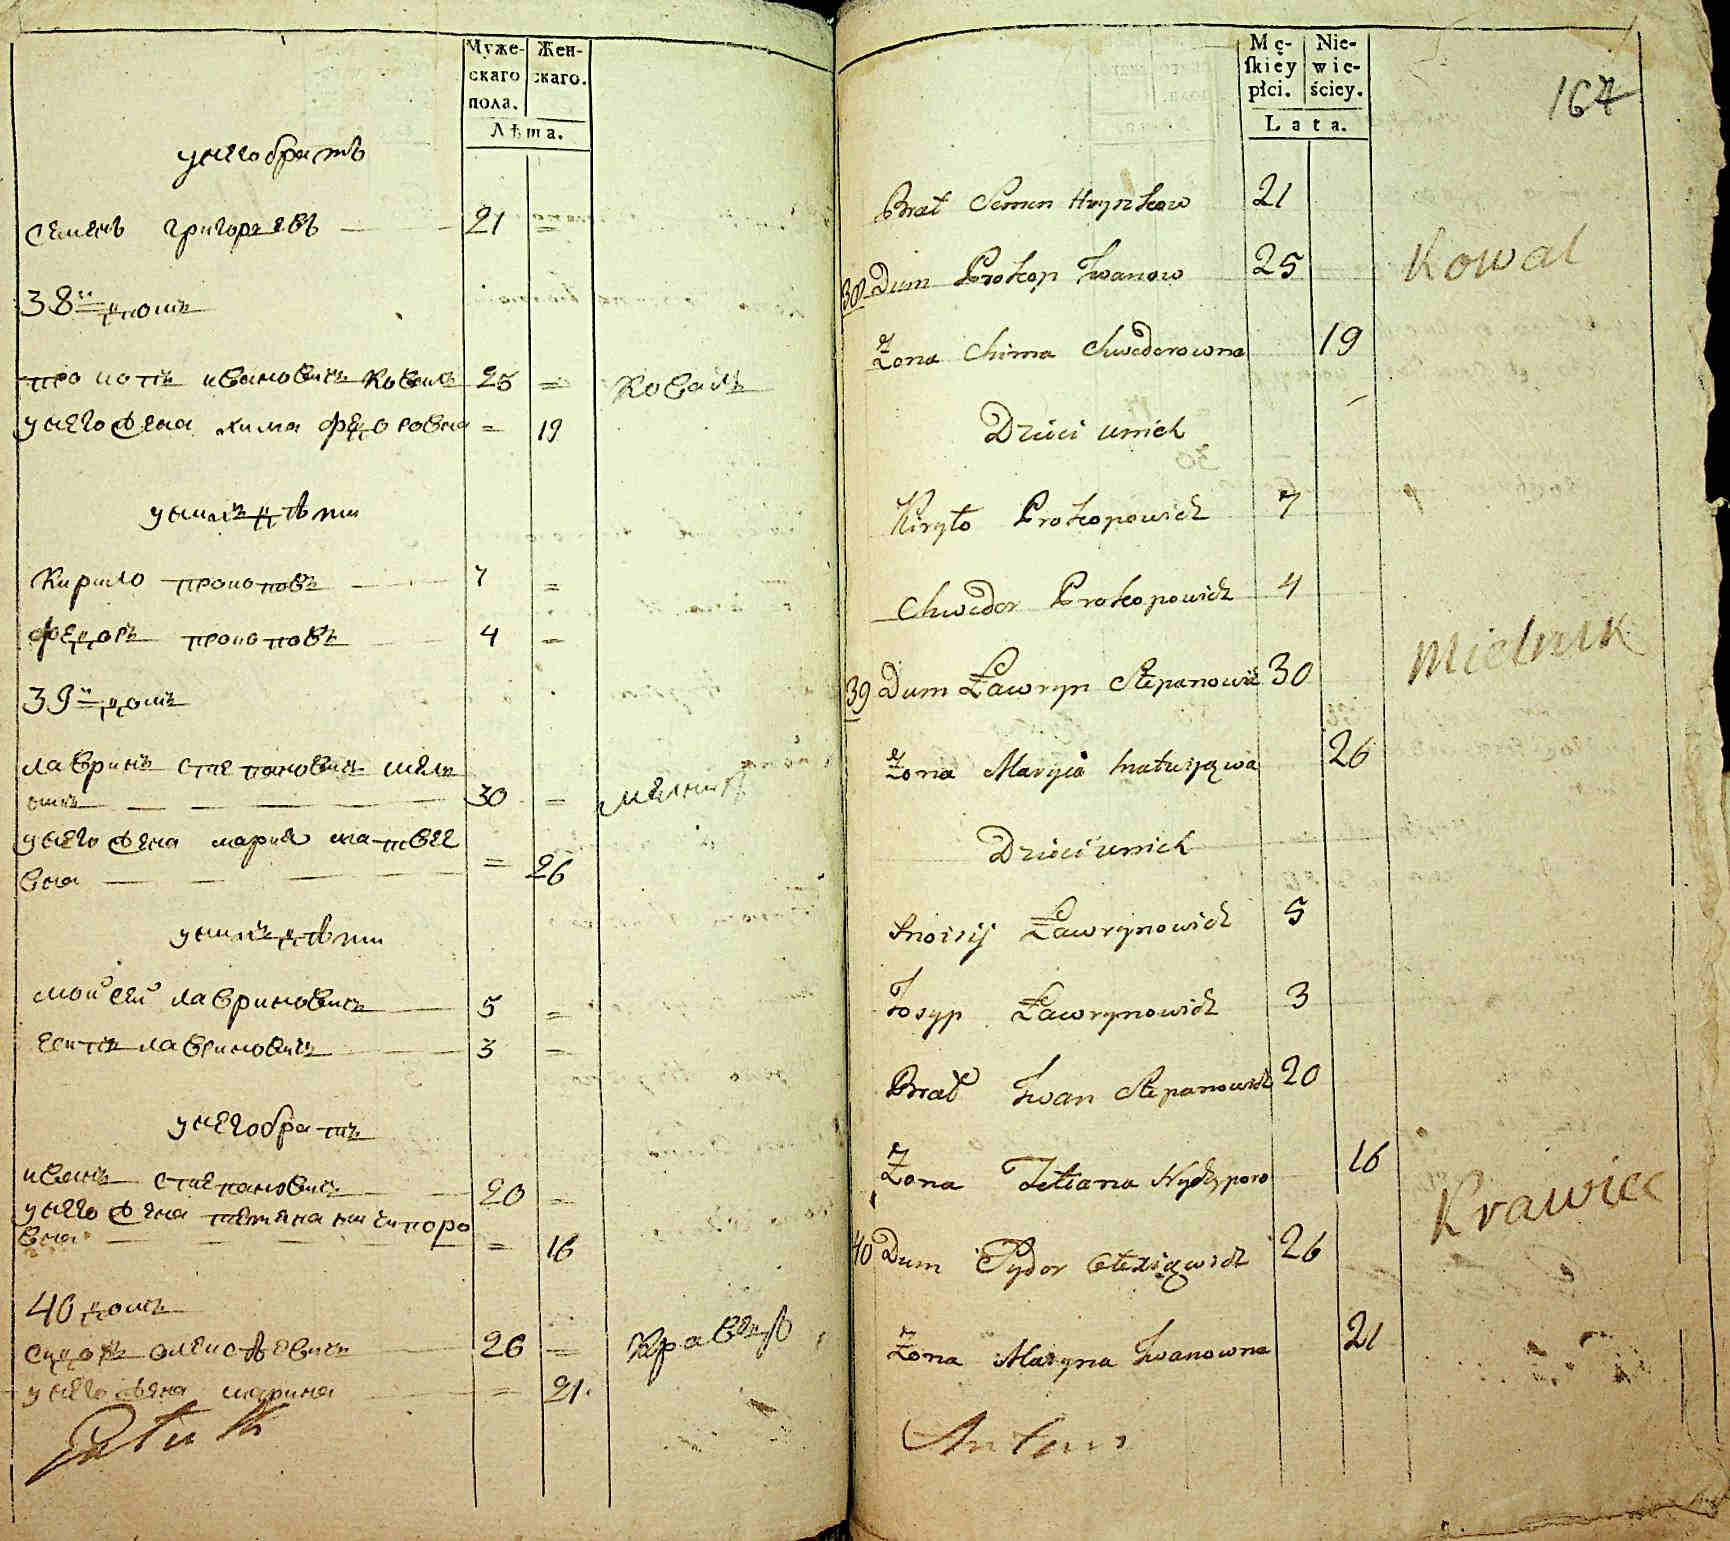 Муже- Жен-
скаго скаго.
пола.
Лѣта.
у него братъ
семенъ григорьевъ 21 =
38й домъ
прокопъ ивановичъ коваль 25 = Коваль
у него жена хима федоровна = 19
у нихъ дѣти
Кирило прокоповъ 7 =
федоръ прокоповъ 4 =
39й домъ
лавринъ степановичъ мель
никъ 30 = мелникъ
у него жена мария матвее
вна = 26
у нихъ дѣти
моисей лавриновичъ 5 =
есипъ лавриновичъ 3 =
у него братъ
иванъ степановичъ 20 =
у него жена татяна ничипоро
вна = 16
40 домъ
сидоръ олексѣевичъ 26 = Кравецъ
у него жена марина = 21.
Mę- Nie-
skiey wie-
płci. ściey.
Lata.
167
Brat Semen Hrynkow 21
38 Dum Prokop Iwanow 25 Kowal
Żona Chima Chwedorowna 19
Dzieci unich
Kiryło Prokopowicz 7
Chwedor Prokopowicz 4
39 Dum Ławryn Stepanowicz 30 Mielnik
Żona Maryia Matwijowa 26
Dzieci unich
Moisij Ławrynowicz 5
Josyp Ławrynowicz 3
Brat Iwan Stepanowicz 20
Żona Tetiana Nyczyporo 16
40 Dum Sydor Olexiiowicz 26 Krawiec
Żona Maryna Iwanowna 21
Antoni